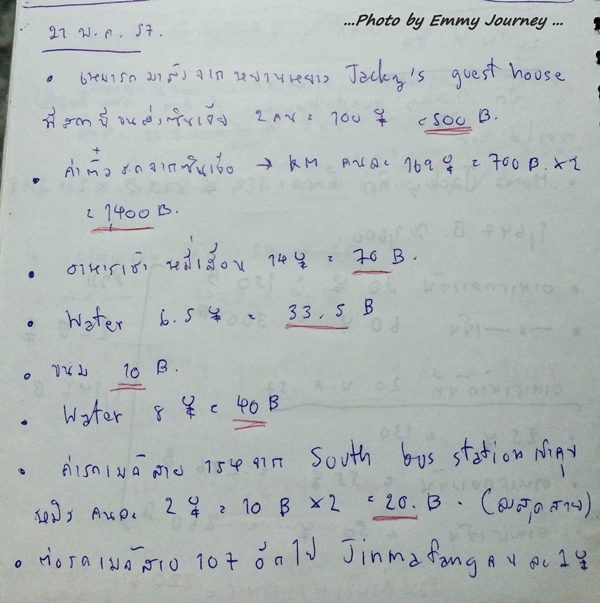 ...Photo by Emmy Journey ...
21 พ.ค. 57.
• เหมารถมาส่งจากหยวนหยาง Jacky's guest house
ที่สถานีขนส่งซินเจีย 2 คน = 100 ¥ = 500 B.
• ค่าตั๋วรถจากซินเจีย → KM คนละ 169 ¥ = 700 B. ×2
= 1,400 B.
• อาหารเช้า หมี่เสี้ยน 14 ¥ = 70 B.
• Water 6.5 ¥ = 33.5 B
• ขนม 10 B.
• Water 8 ¥ = 40 B
• ค่ารถเมล์สาย จาก South bus station เข้าคุน
หมิง คนละ 2 ¥ = 10 B ×2 = 20. B. (ลงสุดสาย)
• ต่อรถเมล์สาย 107 อีกไป Jinmafang คนละ 1 ¥